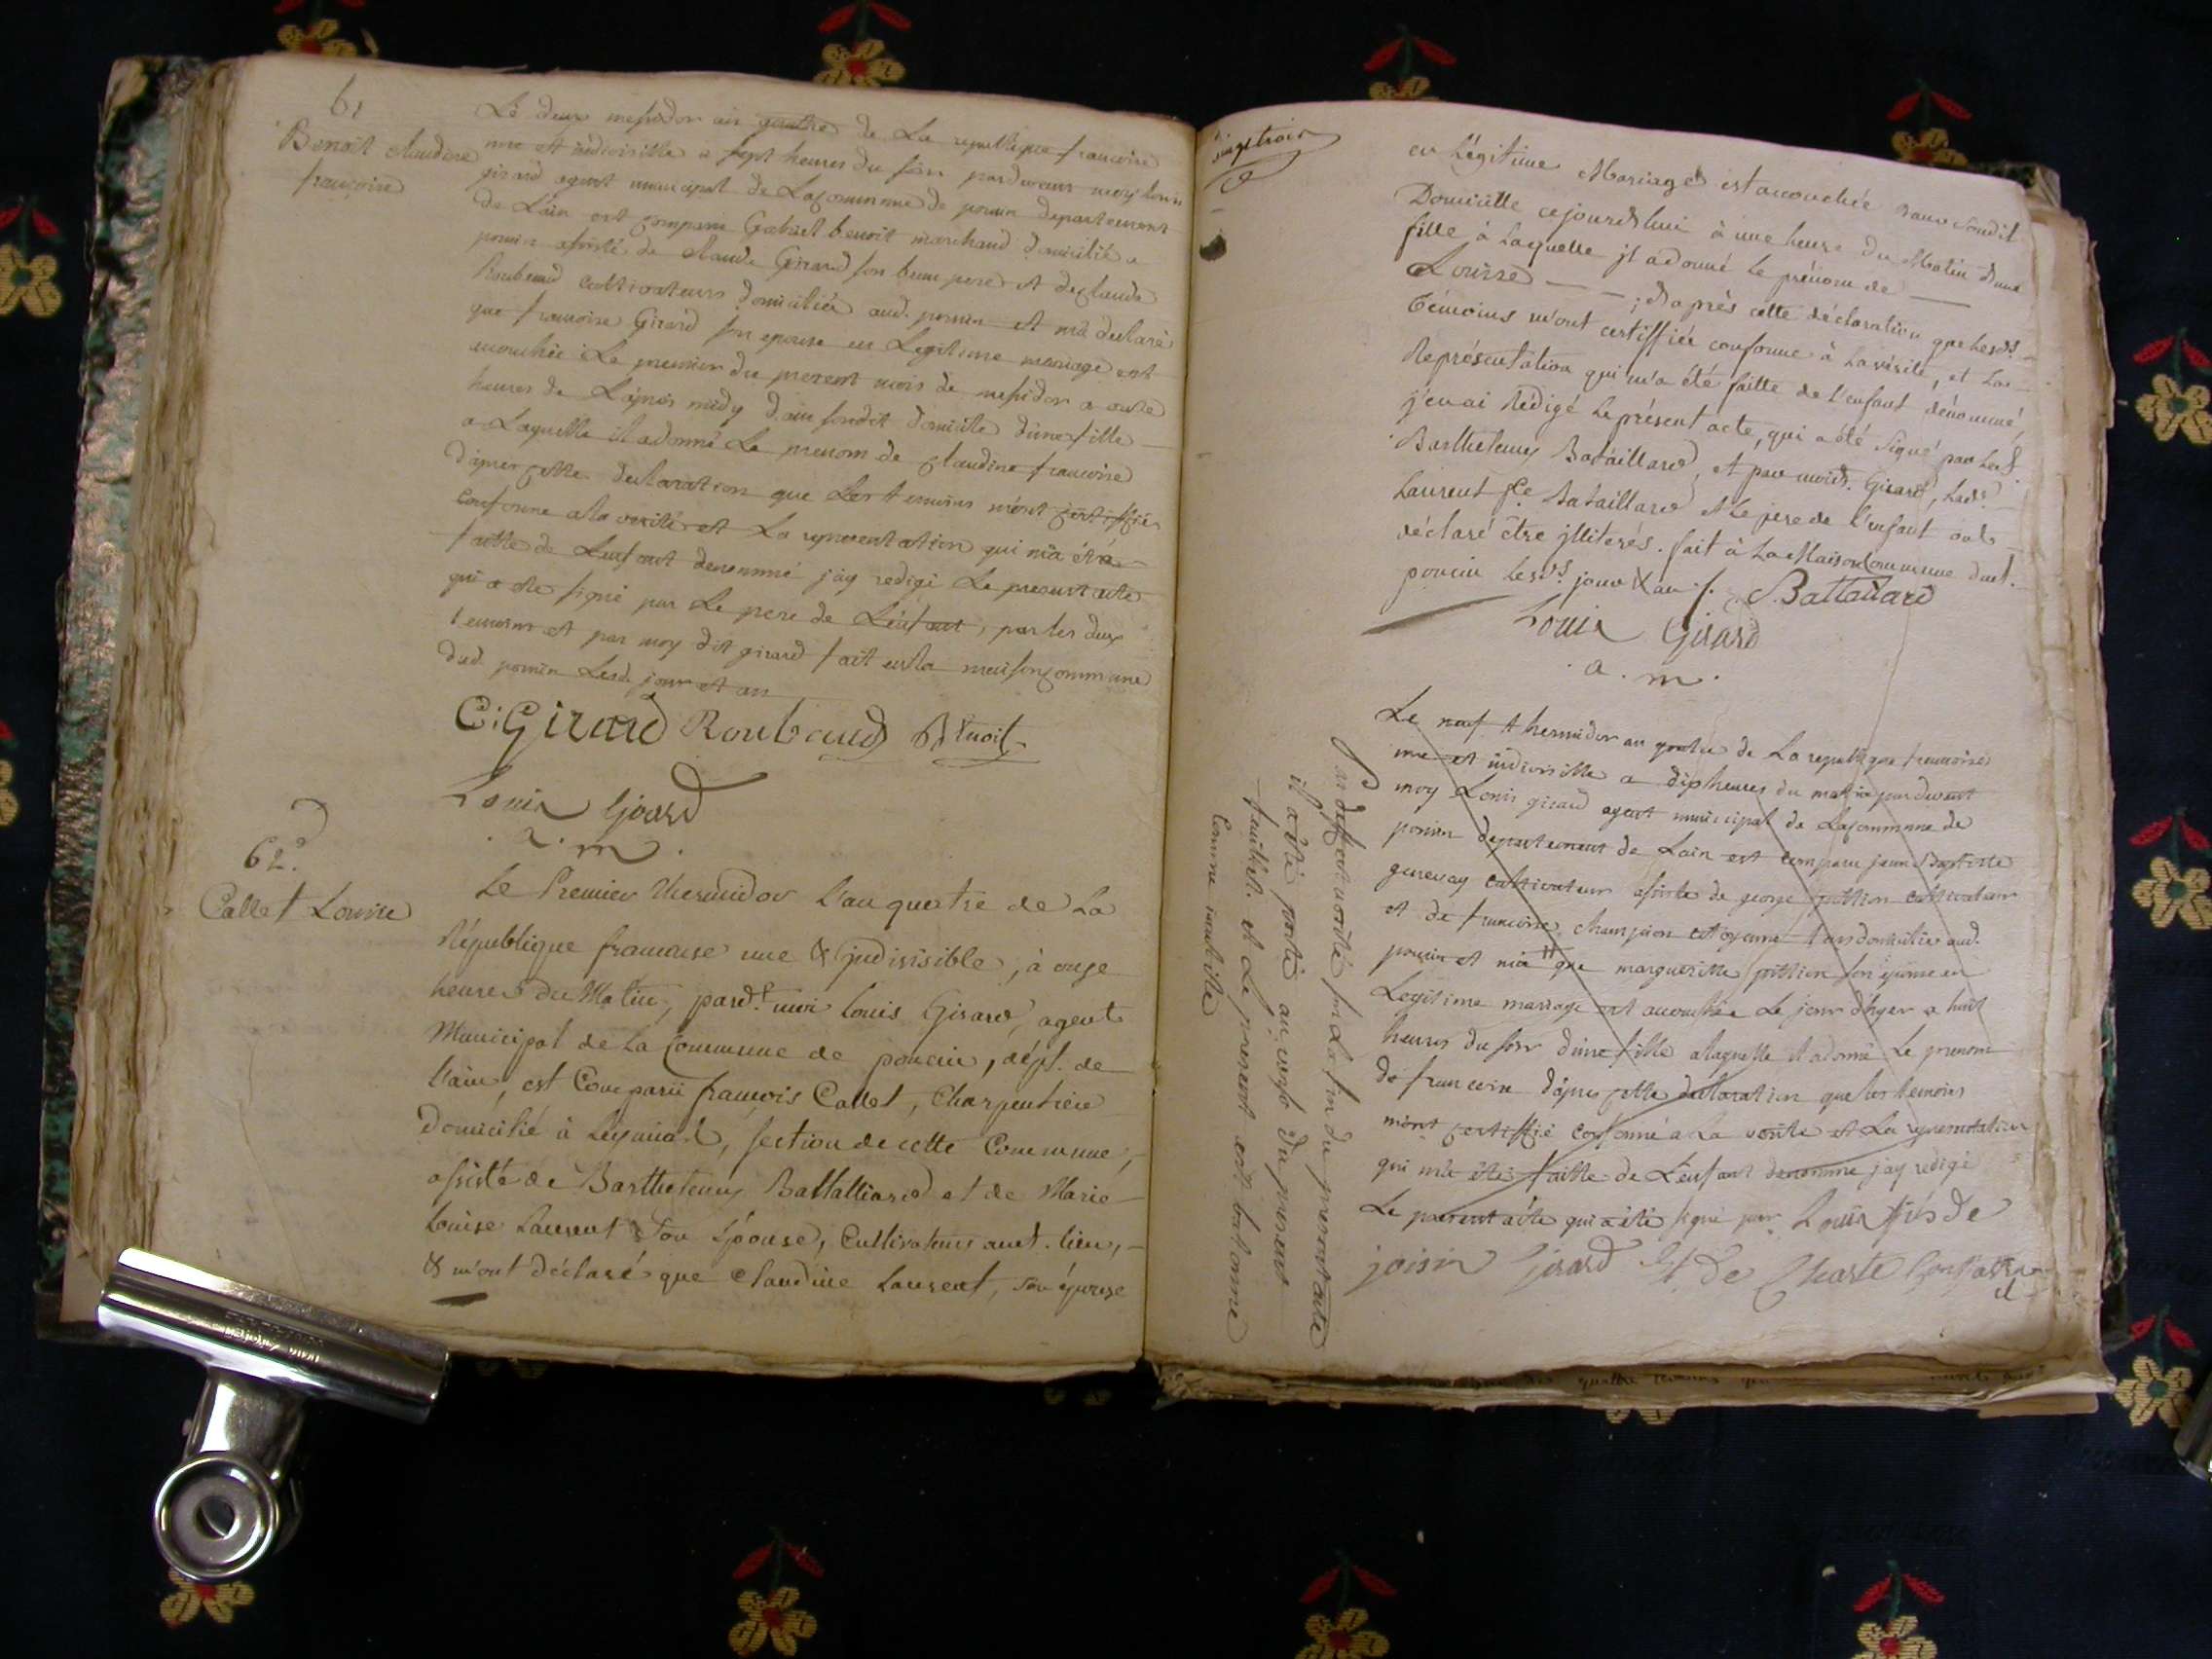 61
Benoit claudine
francoise
Le deux messidor an quattre de La republique francoise
une et indivisible a sept heures du soir pardevant moy louis
girard agent municipal de La commune de poncin departement
de Lain est comparu Gabriel benoit marchand domicilié a
poncin assisté de claude Girard son beau pere et de claude
Roubaud cultivateurs domiciliés aud. poncin et m'a declaré
que francoise Girard son epouse en Legitime mariage est
accouchée Le premier du present mois de messidor a onze
heures de L'apres midy dans sondit domicile d'une fille
a Laquelle il a donné Le prenom de claudine francoise
d'apres cette declaration que Les temoins m'ont certiffié
conforme a la verité et La representation qui m'a été
faitte de Lenfant denommé j'ay redigé Le present acte
qui a été signé par Le pere de Lenfant, par les deux
temoins et par moy dit girard fait en la maison commune
dud. poncin Lesd. jour et an
C. Girard Roubaud Benoit
Louis Girard
a. m.
62.
Callet Louise
Le Premier thermidor l'an quatre de La
République francaise une & indivisible, à onze
heures du Matin, pardt. moi Louis Girard, agent
Municipal de La Commune de poncin, dépt. de
l'ain, est Comparu françois Callet, Charpentier
Domicilié à Leymiat, section de cette Commune,
assisté de Barthelemy Battalliard et de Marie
Louise Laurent Son Epouse, Cultivateurs audt. lieu,
& m'ont déclaré que Claudine Laurent, son épouse
vingt trois
en Légitime Mariage est accouchée dans Sondit
Domicille cejourd'hui à une heure du Matin d'une
fille à Laquelle il a donné Le prénom de
Louise ; d'après cette déclaration que Lesds.
témoins m'ont certiffiée conforme à La vérité, et La
Représentation qui m'a été faitte de l'enfant dénommé,
j'en ai Rédigé Le présent acte, qui a été Signé par Led.
Barthelemy Bataillard, et par moid. Girard, Lade.
Laurent fe. Bataillard et le pere de l'enfant ont
déclaré être illiterés. fait à La Maison Commune dudt.
poncin Lesds. jour & an. Battaliard
Louis Girard
a. m.
Le neuf thermidor an quatre de La republique francoise
une et indivisible a dix heures du matin pardevant
moy Louis girard agent municipal de La commune de
poncin departement de Lain est comparu jean Baptiste
genevay cultivateur assisté de george pittion cultivateur
et de francoise champion citoyenne tous domicilié aud.
poncin et m'a que margueritte pittion son epouse en
Legitime mariage est accouchée Le jour d'hyer a huit
heures du soir d'une fille a laquelle il a donné Le prenom
de francoise d'apres cette declaration que les temoins
m'ont certiffié conforme a La verité et La representation
qui m'a été faitte de Lenfant denommé j'ay redigé
Le present acte qui a été signé par
Par deffectuosité sur La fin du present acte
il a été porté au verso du present
feuillet et Le present est batonné
Comme inutille